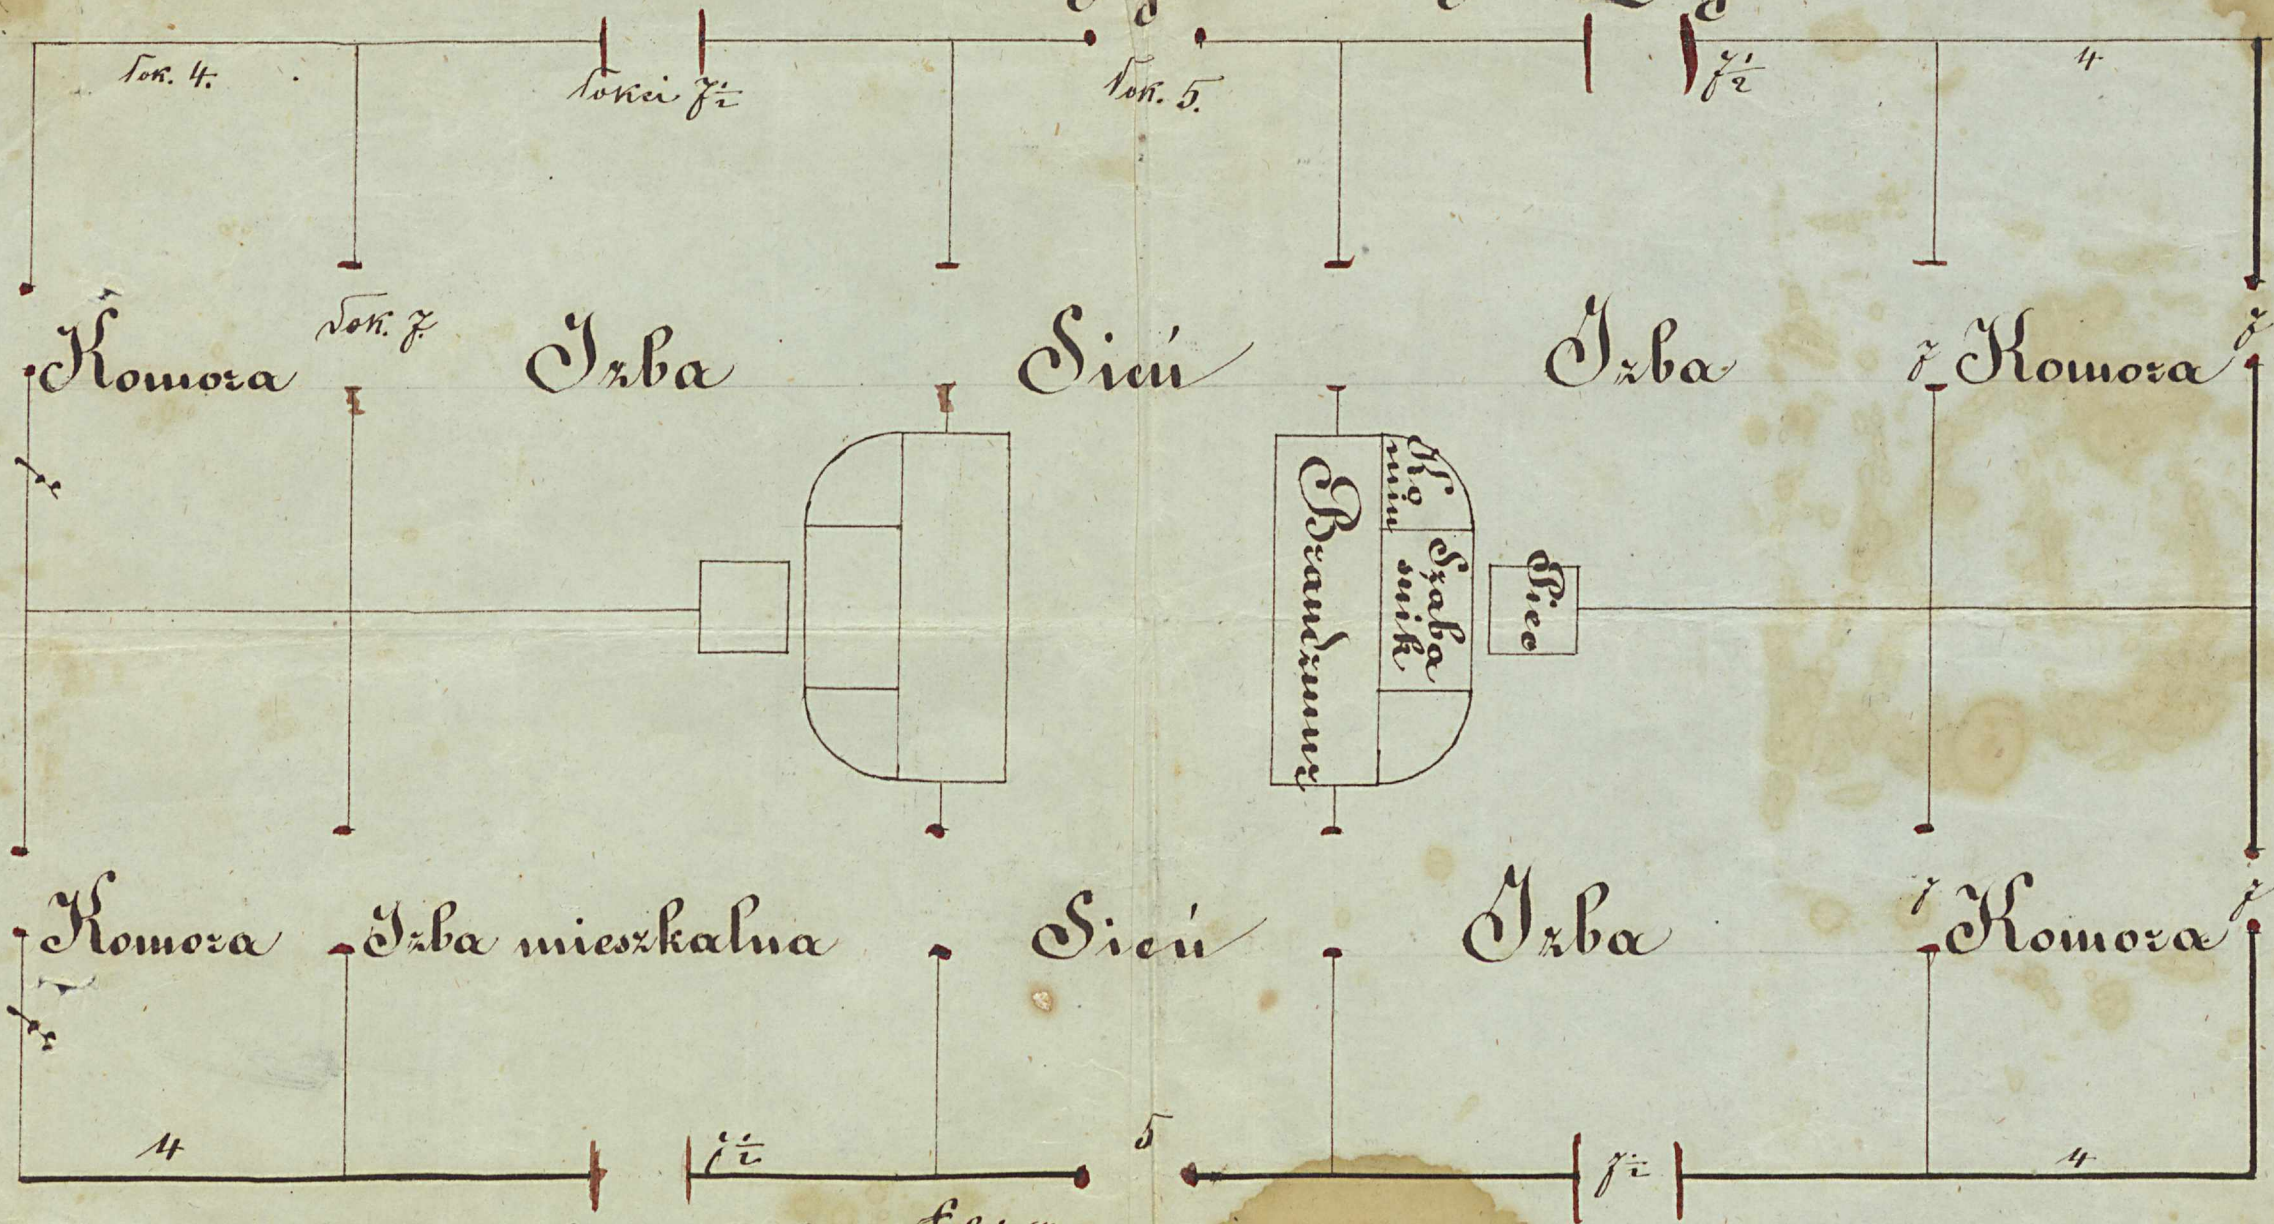 Łok. 4.
Łokci 7½
Łok. 5.
7½
4
Komora
Łok. 7.
Izba
Sień
Izba
7
Komora
7
Brandmur
Ko
min
Szaba
śnik
Piec
Komora
Izba mieszkalna
Sień
Izba
7
Komora
7
4
7½
5
7½
4